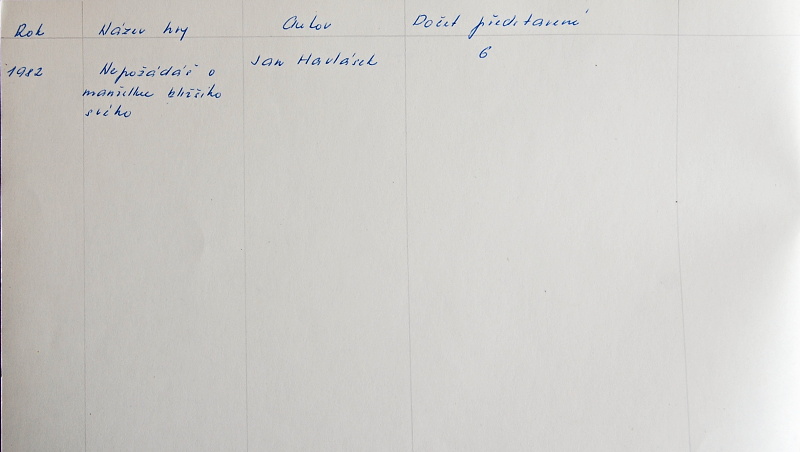 Rok Název hry Autor Počet představení
1982 Nepožádáš o Jan Havlásek 6
manželku bližšího
svého